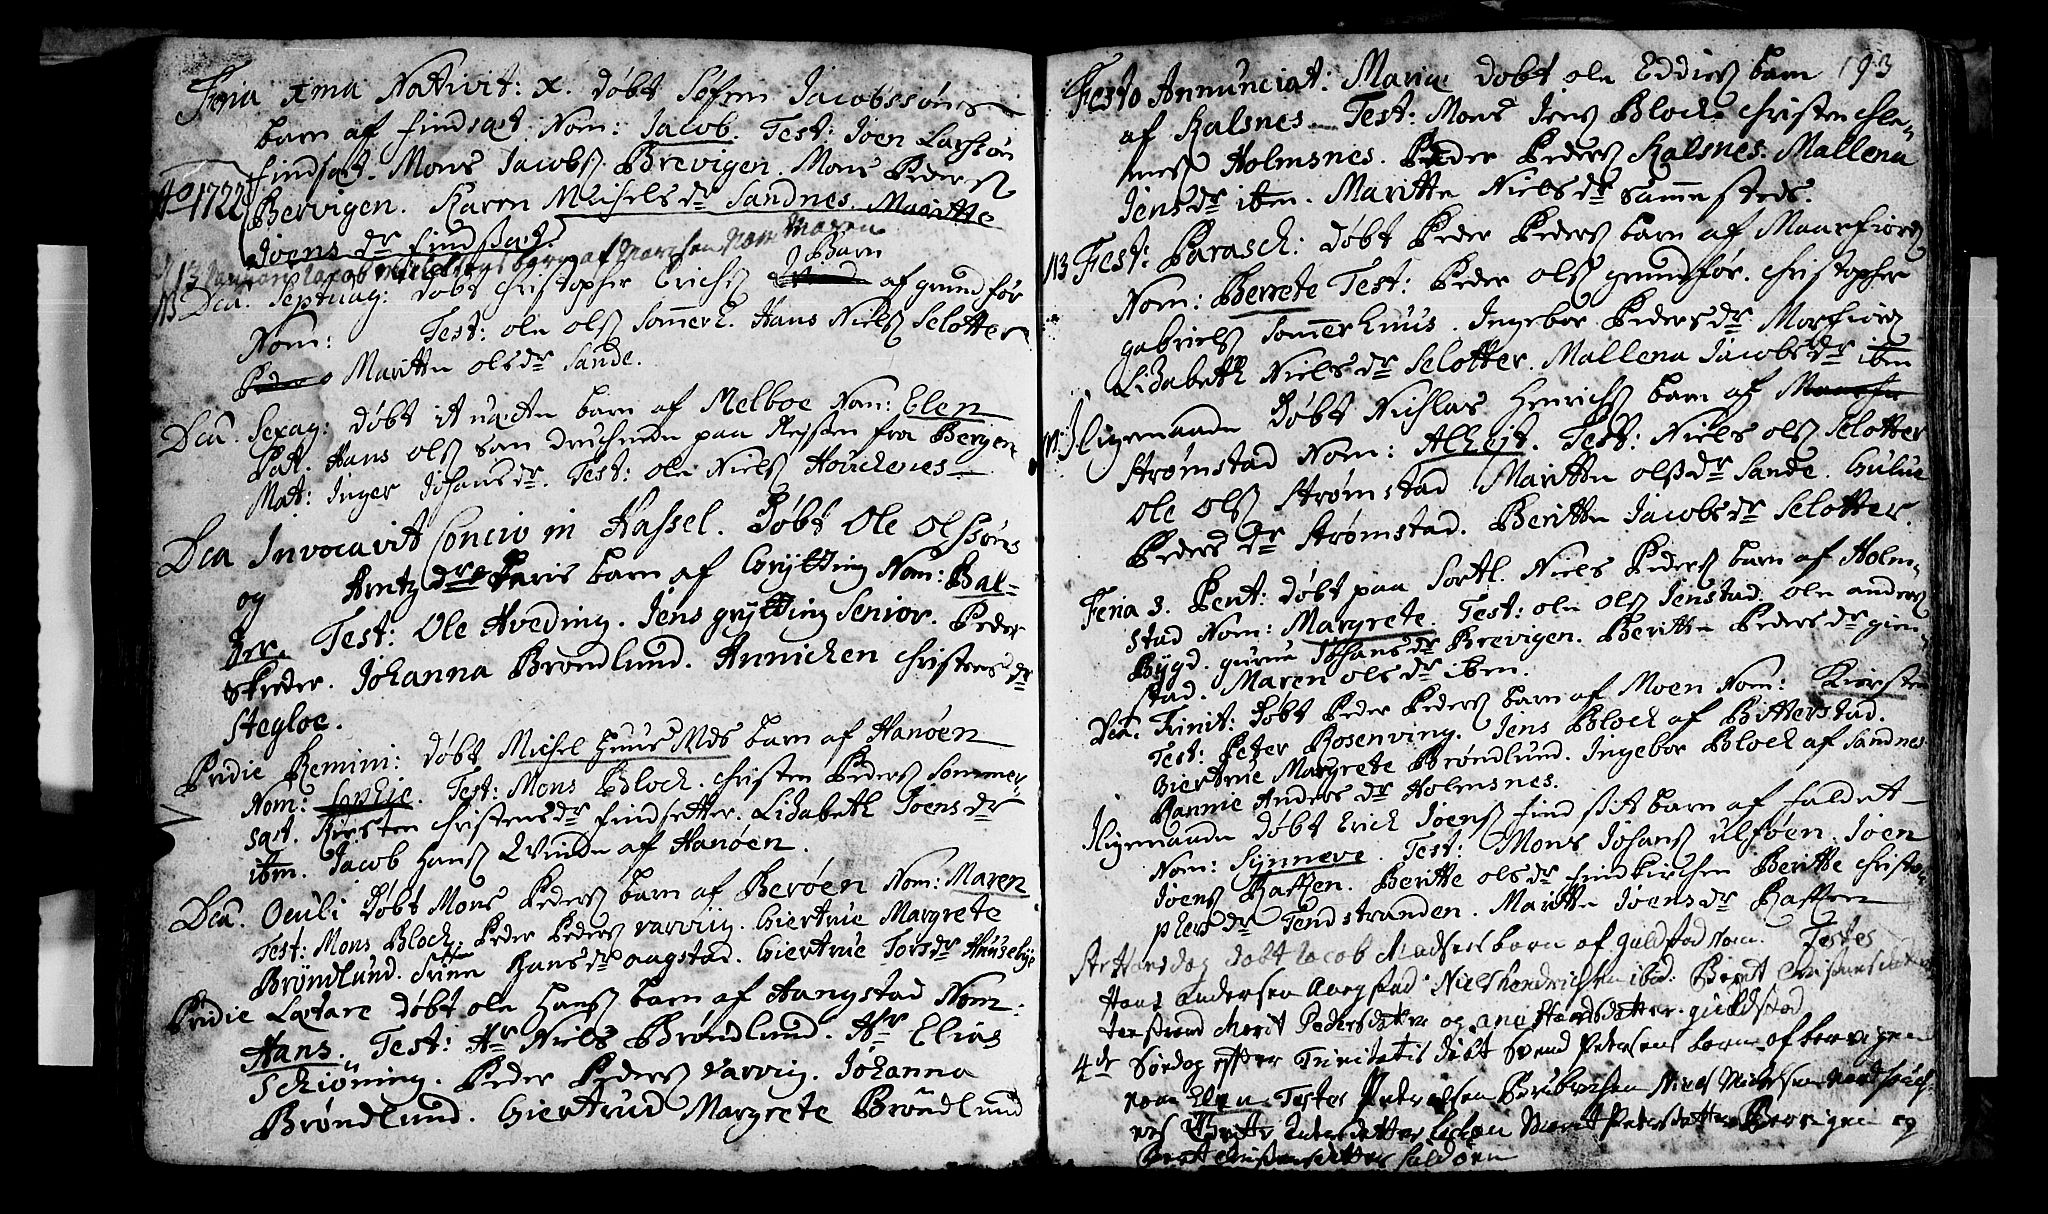 Feria 1ma Nativit: X. døbt Søfren Jacobssøns
barn af findsæt Nom: Jacob. Test: Joen Larssøn
findsæt. Mons Jacobs. Brevigen. Mons Peders.
Ao 1722 Bervigen. Karen Michelsdr Sandnes. Maritte
Joensdr findsæt.
Jacob barn af Nom Maren
Barn
NB Dca. Septuag: døbt Christopher Erichs. af grundfør
Nom: Test: ole ols. Sommerh. Hans Niels. Selotter
Maritte olsdr Sande.
Dca. Sexag: døbt it uægte barn af Melboe Nom: Elen
Pat. Hans ols. som druchnede paa Rejsen fra Bergen
Mat: Inger Johansdr. Test: ole Niels. Houchenes
Dca Invocavit Concio in Hassel. Døbt Ole Olssøns
og Arntzdrs Karis barn af Grytting Nom: Bal-
zer. Test: Ole Hveding. Jens grytting Senior. Peder
Skreder. Johanna Brøndlund. Annichen Christensdr
Stegloe.
Pridie Remini: døbt Michel Huus Mds barn af Hanøen
Nom: Sophie. Test: Mons Bloch. Christen Peders. Sommer-
sæt. Kirsten Christensdr findsetter. Lisabeth Joensdr
ibm. Jacob Hans. Qvinde af Hanøen.
Dca. Oculi Døbt Mons Peders. barn af Berøen Nom: Maren
Test: Mons Bloch. Peder Peders. Varvig. Giertrue Margrete
Brøndlund. Trine Hansdr aagstad. Giertrue Torsdr
Pridie Lætare døbt ole Hans. barn af Haugstad Nom:
Hans. Test: Hr Niels Brøndlund. Hr Elias
Schiøning. Peder Peders. Varvig. Johanna
Brøndlund. Giertrud Margrete Brøndlund
193
Festo Annunciat: Mariæ døbt ole Eddies. barn
af Kalsnes. Test: Mons Jens. Bloch. Christen Cle-
mes. Holmsnes. Peder Peders. Kalsnes. Mallena
Jensdr ibm. Maritte Nielsdr Sammesteds.
NB Fest: Parasch: døbt Peder Peders. barn af Maarfiord
Nom: Berrete Test: Peder ols. grundfør. Christopher
gabriels. Sommerhuus. Ingebor Pedersdr Morfiord
Lisabeth Nielsdr Selotter. Mallena Jacobsdr ibm
Iligemaade Døbt Nichlas Henrichs. barn af
Strømstad Nom: Alheit. Test: Niels ols. Selotter
Ole Ols. Strømstad Maritte olsdr Sande. Gulue
Pedersdr Strømstad. Beritte Jacobsdr Selotter.
Feria 3. Pent: døbt paa Sortl. Niels Peders. barn af Holm-
stad Nom: Margrete. Test: ole Ols. Jenstad. ole anders.
Bygd. gurue Johansdr Brevigen. Beritte Pedersdr gien-
stad. Maren olsdr ibm.
Dca. Trinit: Døbt Peder Peders. barn af Moen Nom: Kiersten
Test: Peter Rosenving. Jens Bloch af Bitterstad.
Giertrue Margrete Brøndlund. Ingebor Bloch af Sandnes
Rannie Andersdr Holmsnes.
Iligemaade døbt Erich Joens. findsæt barn af faldet
Nom: Synneve. Test: Mons Johans. Ulføen. Joen
Joens. Raften. Beritte olsdr findkirchen Beritte Christo-
phersdr Tendstranden. Maritte Joensdr Raften
St Hansdag døbt Jacob Madsens barn af guldstad Nom. Testes
Hans andersen aargstad Niels hendrichsen ibid:
tenstrand Merit Pedersdatter og ane Hansdatter guldstad
4de Søndag effter Trinitatis døbt Svend Petersens barn af bervigen
nom Elen. Testes Peter olsen
Petersdatter Bervigen og